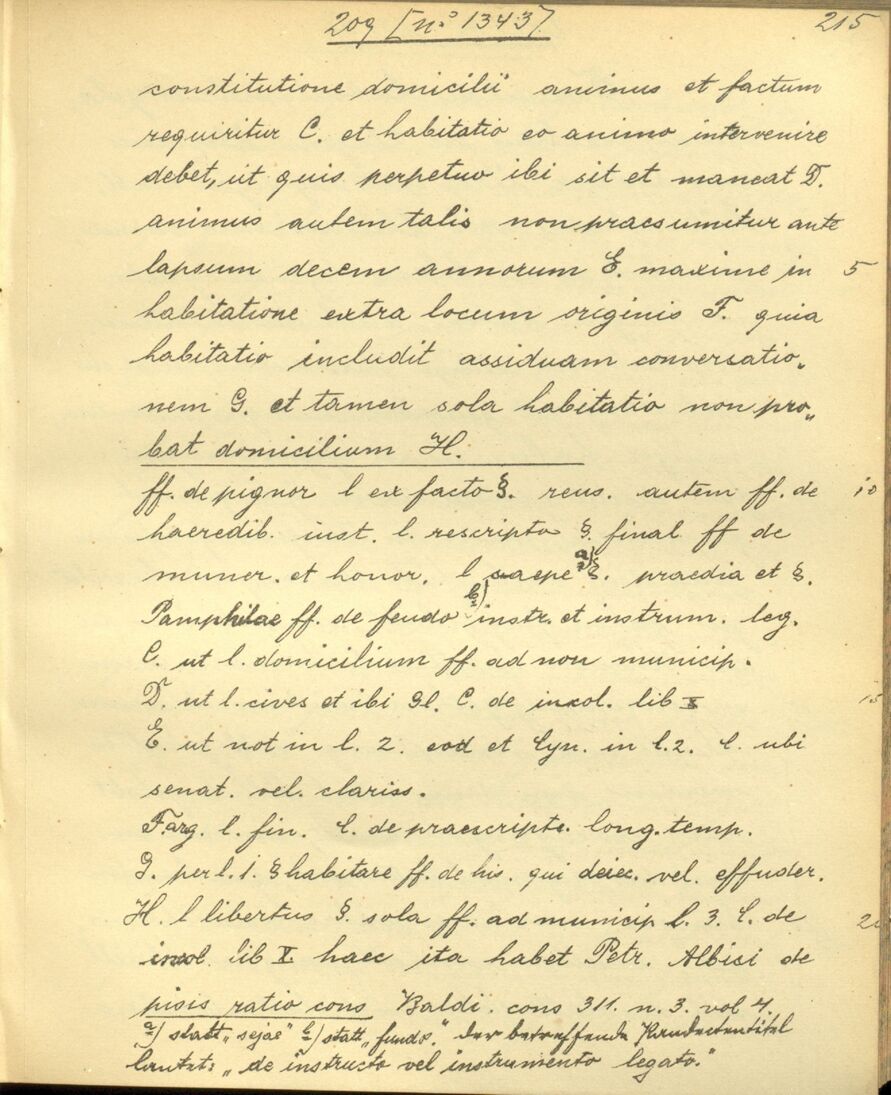 209 [n.º 1343] 215
constitutione domicilii animus et factum
requiritur C. et habitatio eo animo intervenire
debet, ut quis perpetuo ibi sit et maneat D.
animus autem talis non praesumitur ante
lapsum decem annorum E. maxime in 5
habitatione extra locum originis F. quia
habitatio includit assiduam conversatio-
nem G. et tamen sola habitatio non pro-
bat domicilium H.
ff. de pignor l ex facto §. reus. autem ff. de 10
haeredib. inst. l. rescripto §. final ff de
muner. et honor. l saepe a) §. praedia et §.
Pamphilae ff. de feudo b) instr. et instrum. leg.
C. ut l. domicilium ff. ad non municip.
D. ut l. cives et ibi Gl. C. de incol. lib X 15
E. ut not in l. 2. eod et Cyn. in l. 2. C. ubi
senat. vel. clariss.
F. arg. l. fin. C. de praescripte. long. temp.
G. per l. 1. § habitare ff. de his. qui deiec. vel. effuder.
H. l libertus §. sola ff. ad municip l. 3. C. de 20
incol. lib X haec ita habet Petr. Albisi de
pisis ratio cons Baldi. cons 311. n. 3. vol 4.
a) statt „sejae" b) statt „fundo". Der betreffende Pandectentitel
lautet: „de instructo vel instrumento legato."